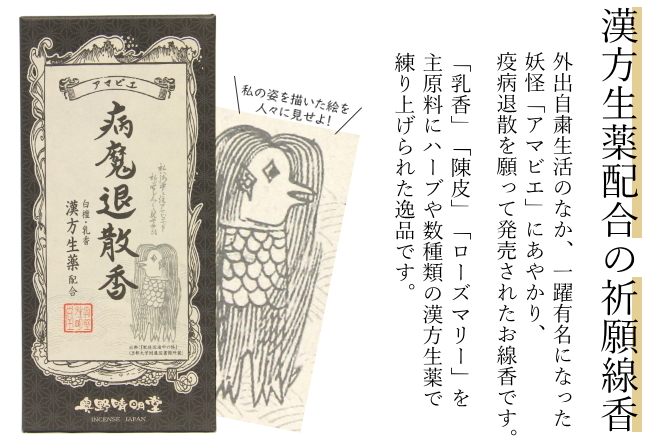 漢方生薬配合の祈願線香
外出自粛生活のなか、一躍有名になった
妖怪「アマビエ」にあやかり、
疫病退散を願って発売されたお線香です。
「乳香」「陳皮」「ローズマリー」を
主原料にハーブや数種類の漢方生薬で
練り上げられた逸品です。
私の姿を描いた絵を
人々に見せよ!
アマビエ
病魔退散香
白檀・乳香
漢方生薬配合
奥野晴明堂
INCENSE JAPAN